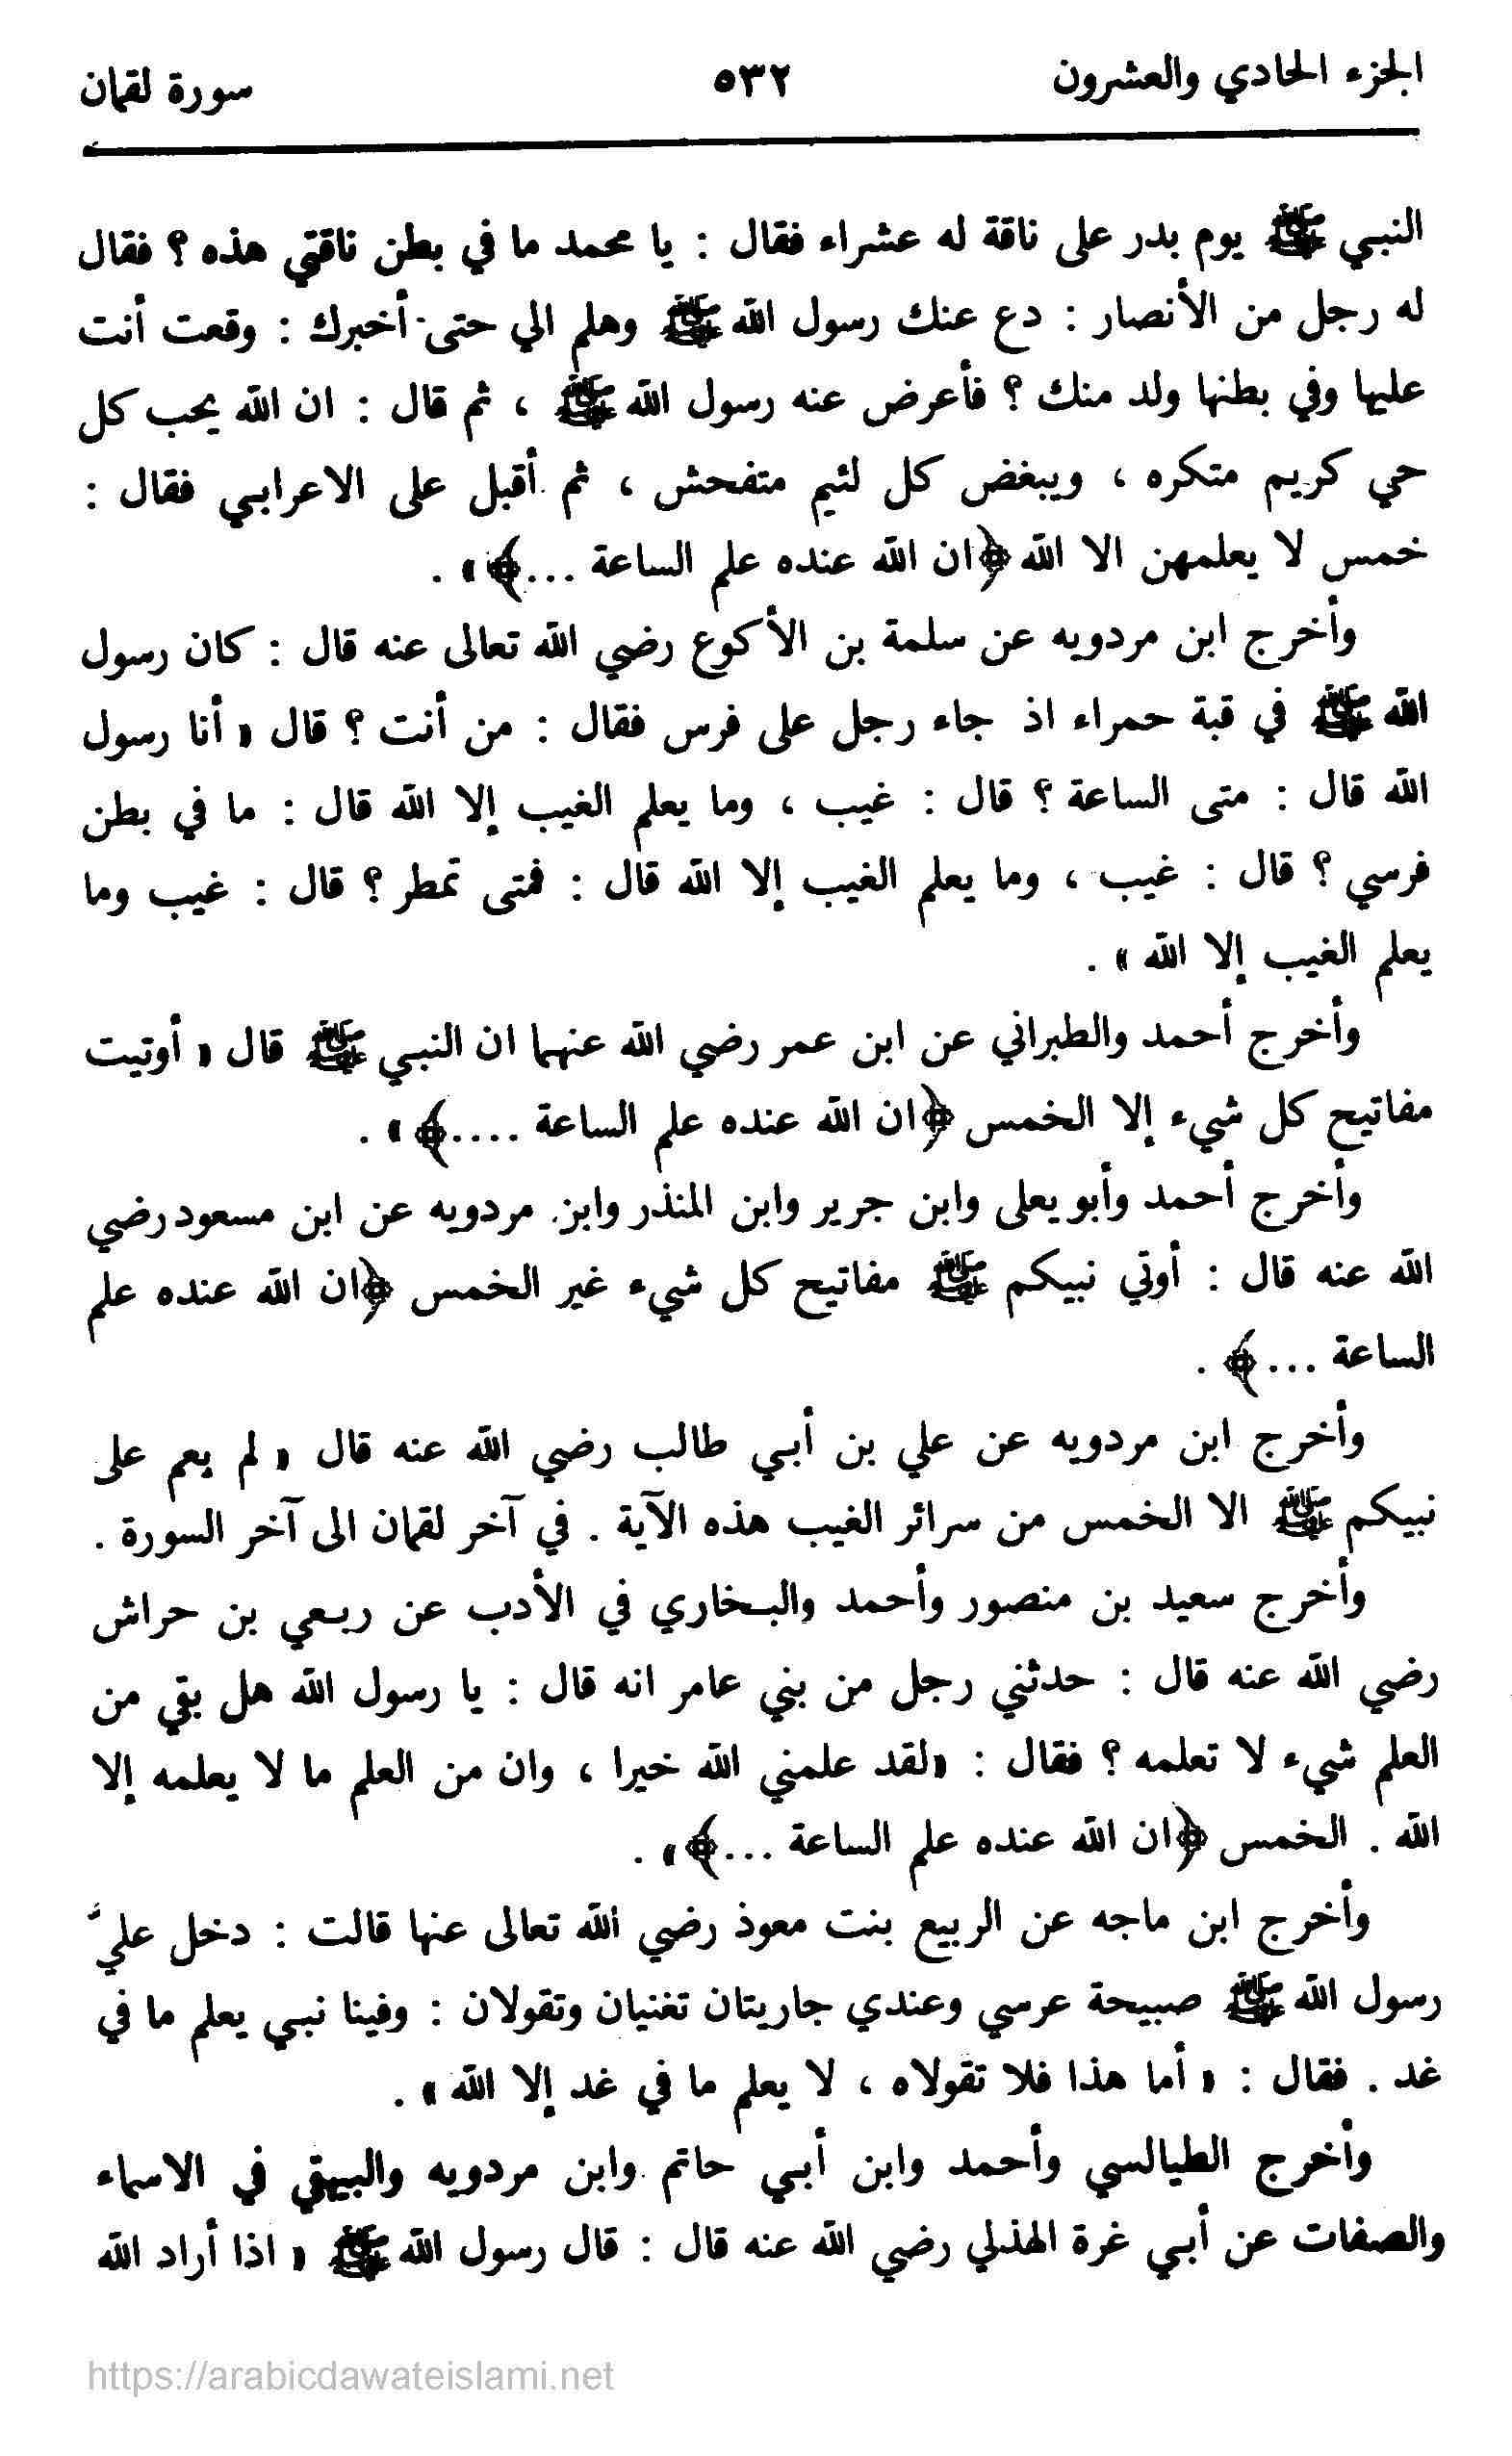 الجزء الحادي والعشرون ٥٣٢ سورة لقمان
النبي ﷺ يوم بدر على ناقة له عشراء فقال : يا محمد ما في بطن ناقتي هذه ؟ فقال
له رجل من الأنصار : دع عنك رسول الله ﷺ وهلم الي حتى أخبرك : وقعت أنت
عليها وفي بطنها ولد منك ؟ فأعرض عنه رسول الله ﷺ ، ثم قال : ان الله يحب كل
حي كريم متكره ، ويبغض كل لئيم متفحش ، ثم أقبل على الاعرابي فقال :
خمس لا يعلمهن الا الله ﴿ان الله عنده علم الساعة ...﴾ » .
وأخرج ابن مردويه عن سلمة بن الأكوع رضي الله تعالى عنه قال : كان رسول
الله ﷺ في قبة حمراء اذ جاء رجل على فرس فقال : من أنت ؟ قال « أنا رسول
الله قال : متى الساعة ؟ قال : غيب ، وما يعلم الغيب إلا الله قال : ما في بطن
فرسي ؟ قال : غيب ، وما يعلم الغيب إلا الله قال : فمتى تمطر ؟ قال : غيب وما
يعلم الغيب إلا الله » .
وأخرج أحمد والطبراني عن ابن عمر رضي الله عنهما ان النبي ﷺ قال « أوتيت
مفاتيح كل شيء إلا الخمس ﴿ان الله عنده علم الساعة ....﴾ » .
وأخرج أحمد وأبو يعلى وابن جرير وابن المنذر وابن مردويه عن ابن مسعود رضي
الله عنه قال : أوتي نبيكم ﷺ مفاتيح كل شيء غير الخمس ﴿ان الله عنده علم
الساعة ...﴾ .
وأخرج ابن مردويه عن علي بن أبي طالب رضي الله عنه قال « لم يعم على
نبيكم ﷺ الا الخمس من سرائر الغيب هذه الآية . في آخر لقمان الى آخر السورة .
وأخرج سعيد بن منصور وأحمد والبخاري في الأدب عن ربعي بن حراش
رضي الله عنه قال : حدثني رجل من بني عامر انه قال : يا رسول الله هل بقي من
العلم شيء لا تعلمه ؟ فقال : «لقد علمني الله خيرا ، وان من العلم ما لا يعلمه إلا
الله . الخمس ﴿ان الله عنده علم الساعة ...﴾» .
وأخرج ابن ماجه عن الربيع بنت معوذ رضي الله تعالى عنها قالت : دخل عليَّ
رسول الله ﷺ صبيحة عرسي وعندي جاريتان تغنيان وتقولان : وفينا نبي يعلم ما في
غد . فقال : « أما هذا فلا تقولاه ، لا يعلم ما في غد إلا الله » .
وأخرج الطيالسي وأحمد وابن أبي حاتم وابن مردويه والبيهقي في الاسماء
والصفات عن أبي غرة الهذلي رضي الله عنه قال : قال رسول الله ﷺ « اذا أراد الله
https://arabicdawateislami.net